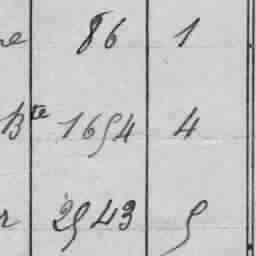 e 86 1
Bte 1654 4
r 2543 5